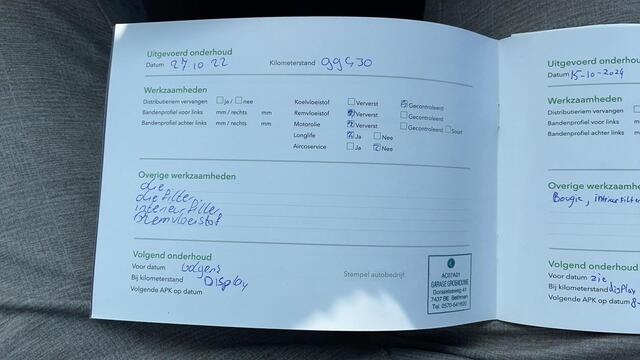 Uitgevoerd onderhoud
Datum 27.10 22 Kilometerstand 99430
Werkzaamheden
Distributieriem vervangen ja / nee
Bandenprofiel voor links mm / rechts mm
Bandenprofiel achter links mm / rechts mm
Koelvloeistof Ververst Gecontroleerd
Remvloeistof Ververst Gecontroleerd
Motorolie Ververst Gecontroleerd Soort
Longlife Ja Nee
Aircoservice Ja Nee
Overige werkzaamheden
olie
oliefilter
interieurfilter
Remvloeistof
Volgend onderhoud
Voor datum volgens
Bij kilometerstand Display
Volgende APK op datum
Stempel autobedrijf
AC07A01
7437 BE Bathmen
Tel. 0570-541620
Uitgevoerd onderhoud
Datum 15-10-2024
Werkzaamheden
Distributieriem vervangen
Bandenprofiel voor links
Bandenprofiel achter links
Overige werkzaam
Bougie, interieurfilter
Volgend onderhoud
Voor datum zie
Bij kilometerstand display
Volgende APK op datum 8-